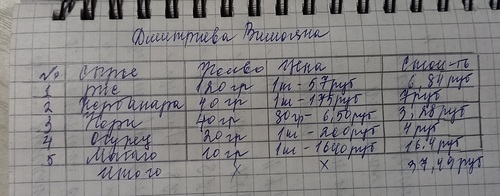 Дмитриева Виталина
№ Сырье Кол-во Цена Стои-ть
1 рис 120гр 1кг - 57руб 6,84руб
2 40гр 1кг - 175руб 7руб
3 Нори 40гр 80гр - 6,50руб 3,25руб
4 Огурец 20гр 1кг - 200руб 4руб
5 10гр 1кг - 1640руб 16,4руб
Итого х х 37,49руб